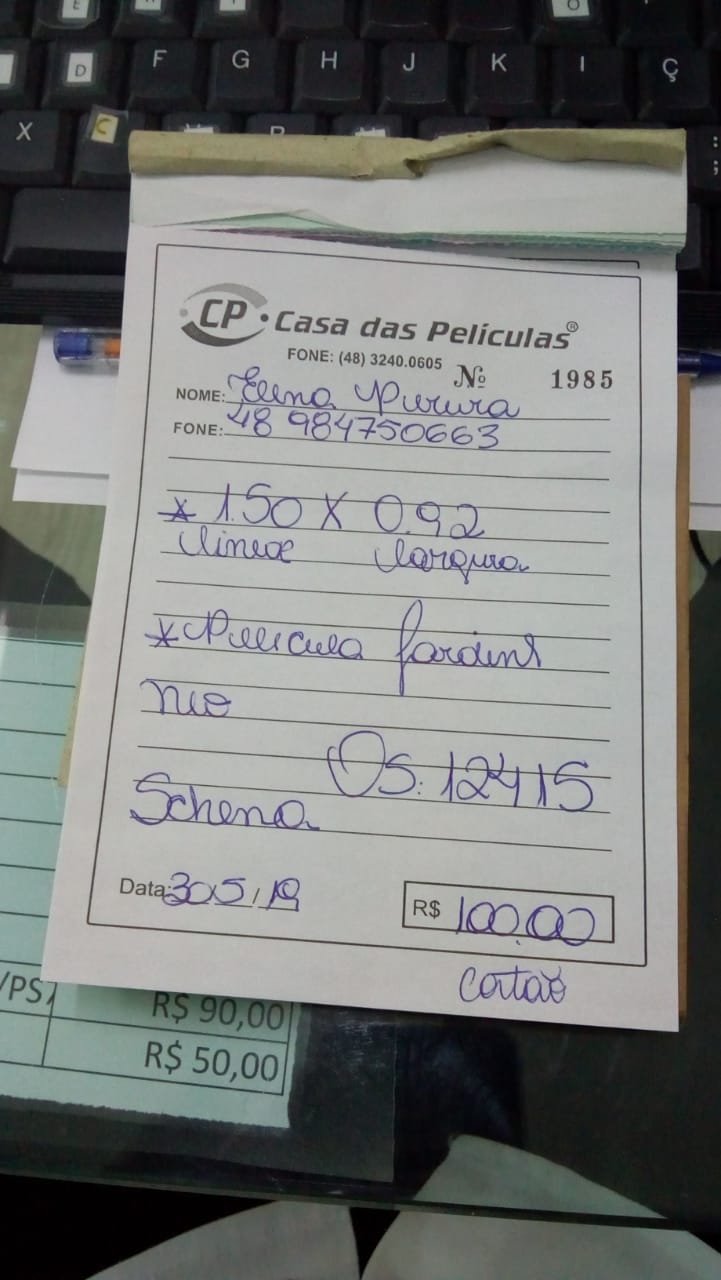 E
D F G H J K I Ç
X C B
CP • Casa das Películas®
FONE: (48) 3240.0605 Nº 1985
NOME: Elena Pereira
FONE: 48 984750663
* 1.50 X 0.92
linear largura
* Pelicula Jardins
Schena
OS: 12415
Data: 30/5/19
R$ 100,00
cartão
R$ 90,00
R$ 50,00